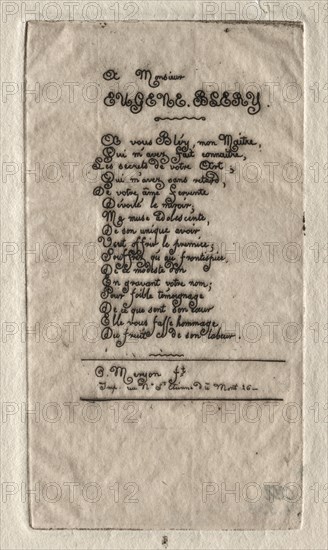 A Monsieur
EUGENE. BLERY.
A vous Bléry, mon Maître,
Qui m'avez fait connaître,
Les secrets de votre Art;
Qui m'avez sans retard,
De votre âme fervente
Dévoilé le miroir;
Ma muse Adolescente
De son unique avoir
Veut offrir les prémices;
Souffrez qu'au frontispice
De ce modeste don
En gravant votre nom;
Pour foible témoignage
De ce que sent son cœur
Elle vous fasse hommage
Du fruit de son labeur.
C. Meryon ft
Imp. rue Nve St Etienne du Mont 26